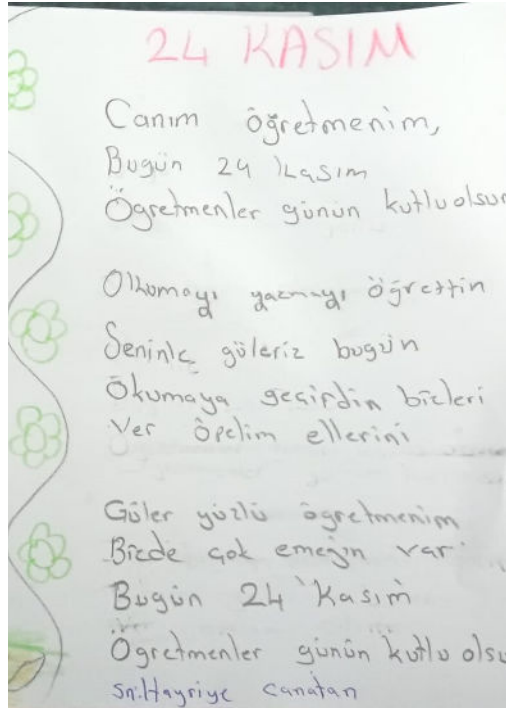 24 KASIM
Canım öğretmenim,
Bugün 24 Kasım
Ögretmenler günün kutlu olsun
Okumayı yazmayı öğrettin
Seninle güleriz bugün
Okumaya geçirdin bizleri
Ver öpelim ellerini
Güler yüzlü ögretmenim
Bizde çok emeğin var
Bugün 24 Kasım
Ögretmenler günün kutlu olsu
Sn.Hayriye Canatan